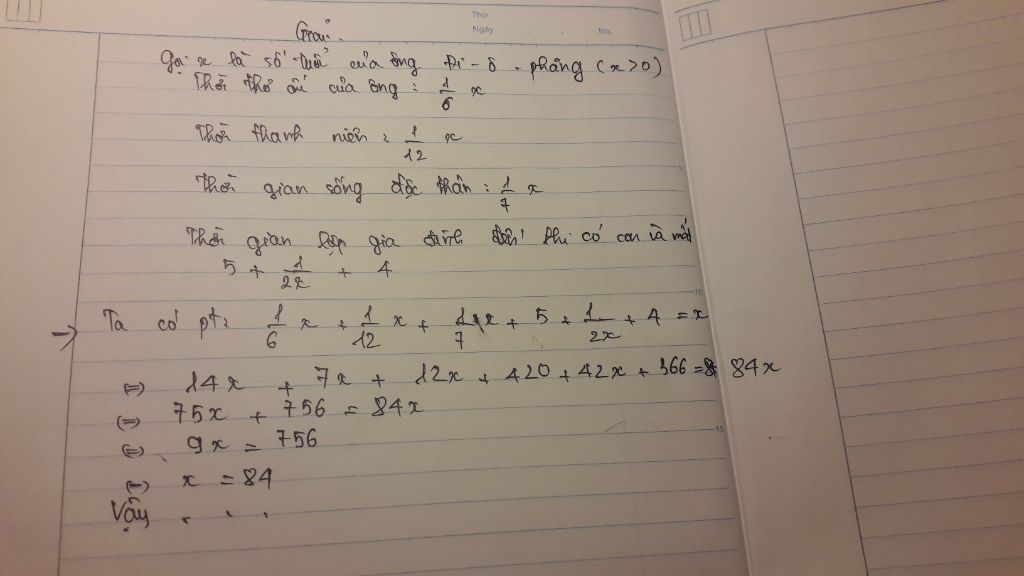 Thứ
Ngày . . No.
Giải.
Gọi x là số tuổi của ông Đi-ô-phăng (x>0)
Thời thơ ấu của ông : 1/6 x
Thời thanh niên : 1/12 x
Thời gian sống độc thân : 1/7 x
Thời gian lập gia đình đến khi có con và mất
5 + 1/2x + 4
→ Ta có pt: 1/6 x + 1/12 x + 1/7 x + 5 + 1/2x + 4 = x
⇔ 14x + 7x + 12x + 420 + 42x + 366 = 84x
⇔ 75x + 756 = 84x
⇔ 9x = 756
⇔ x = 84
Vậy . . .
10
15